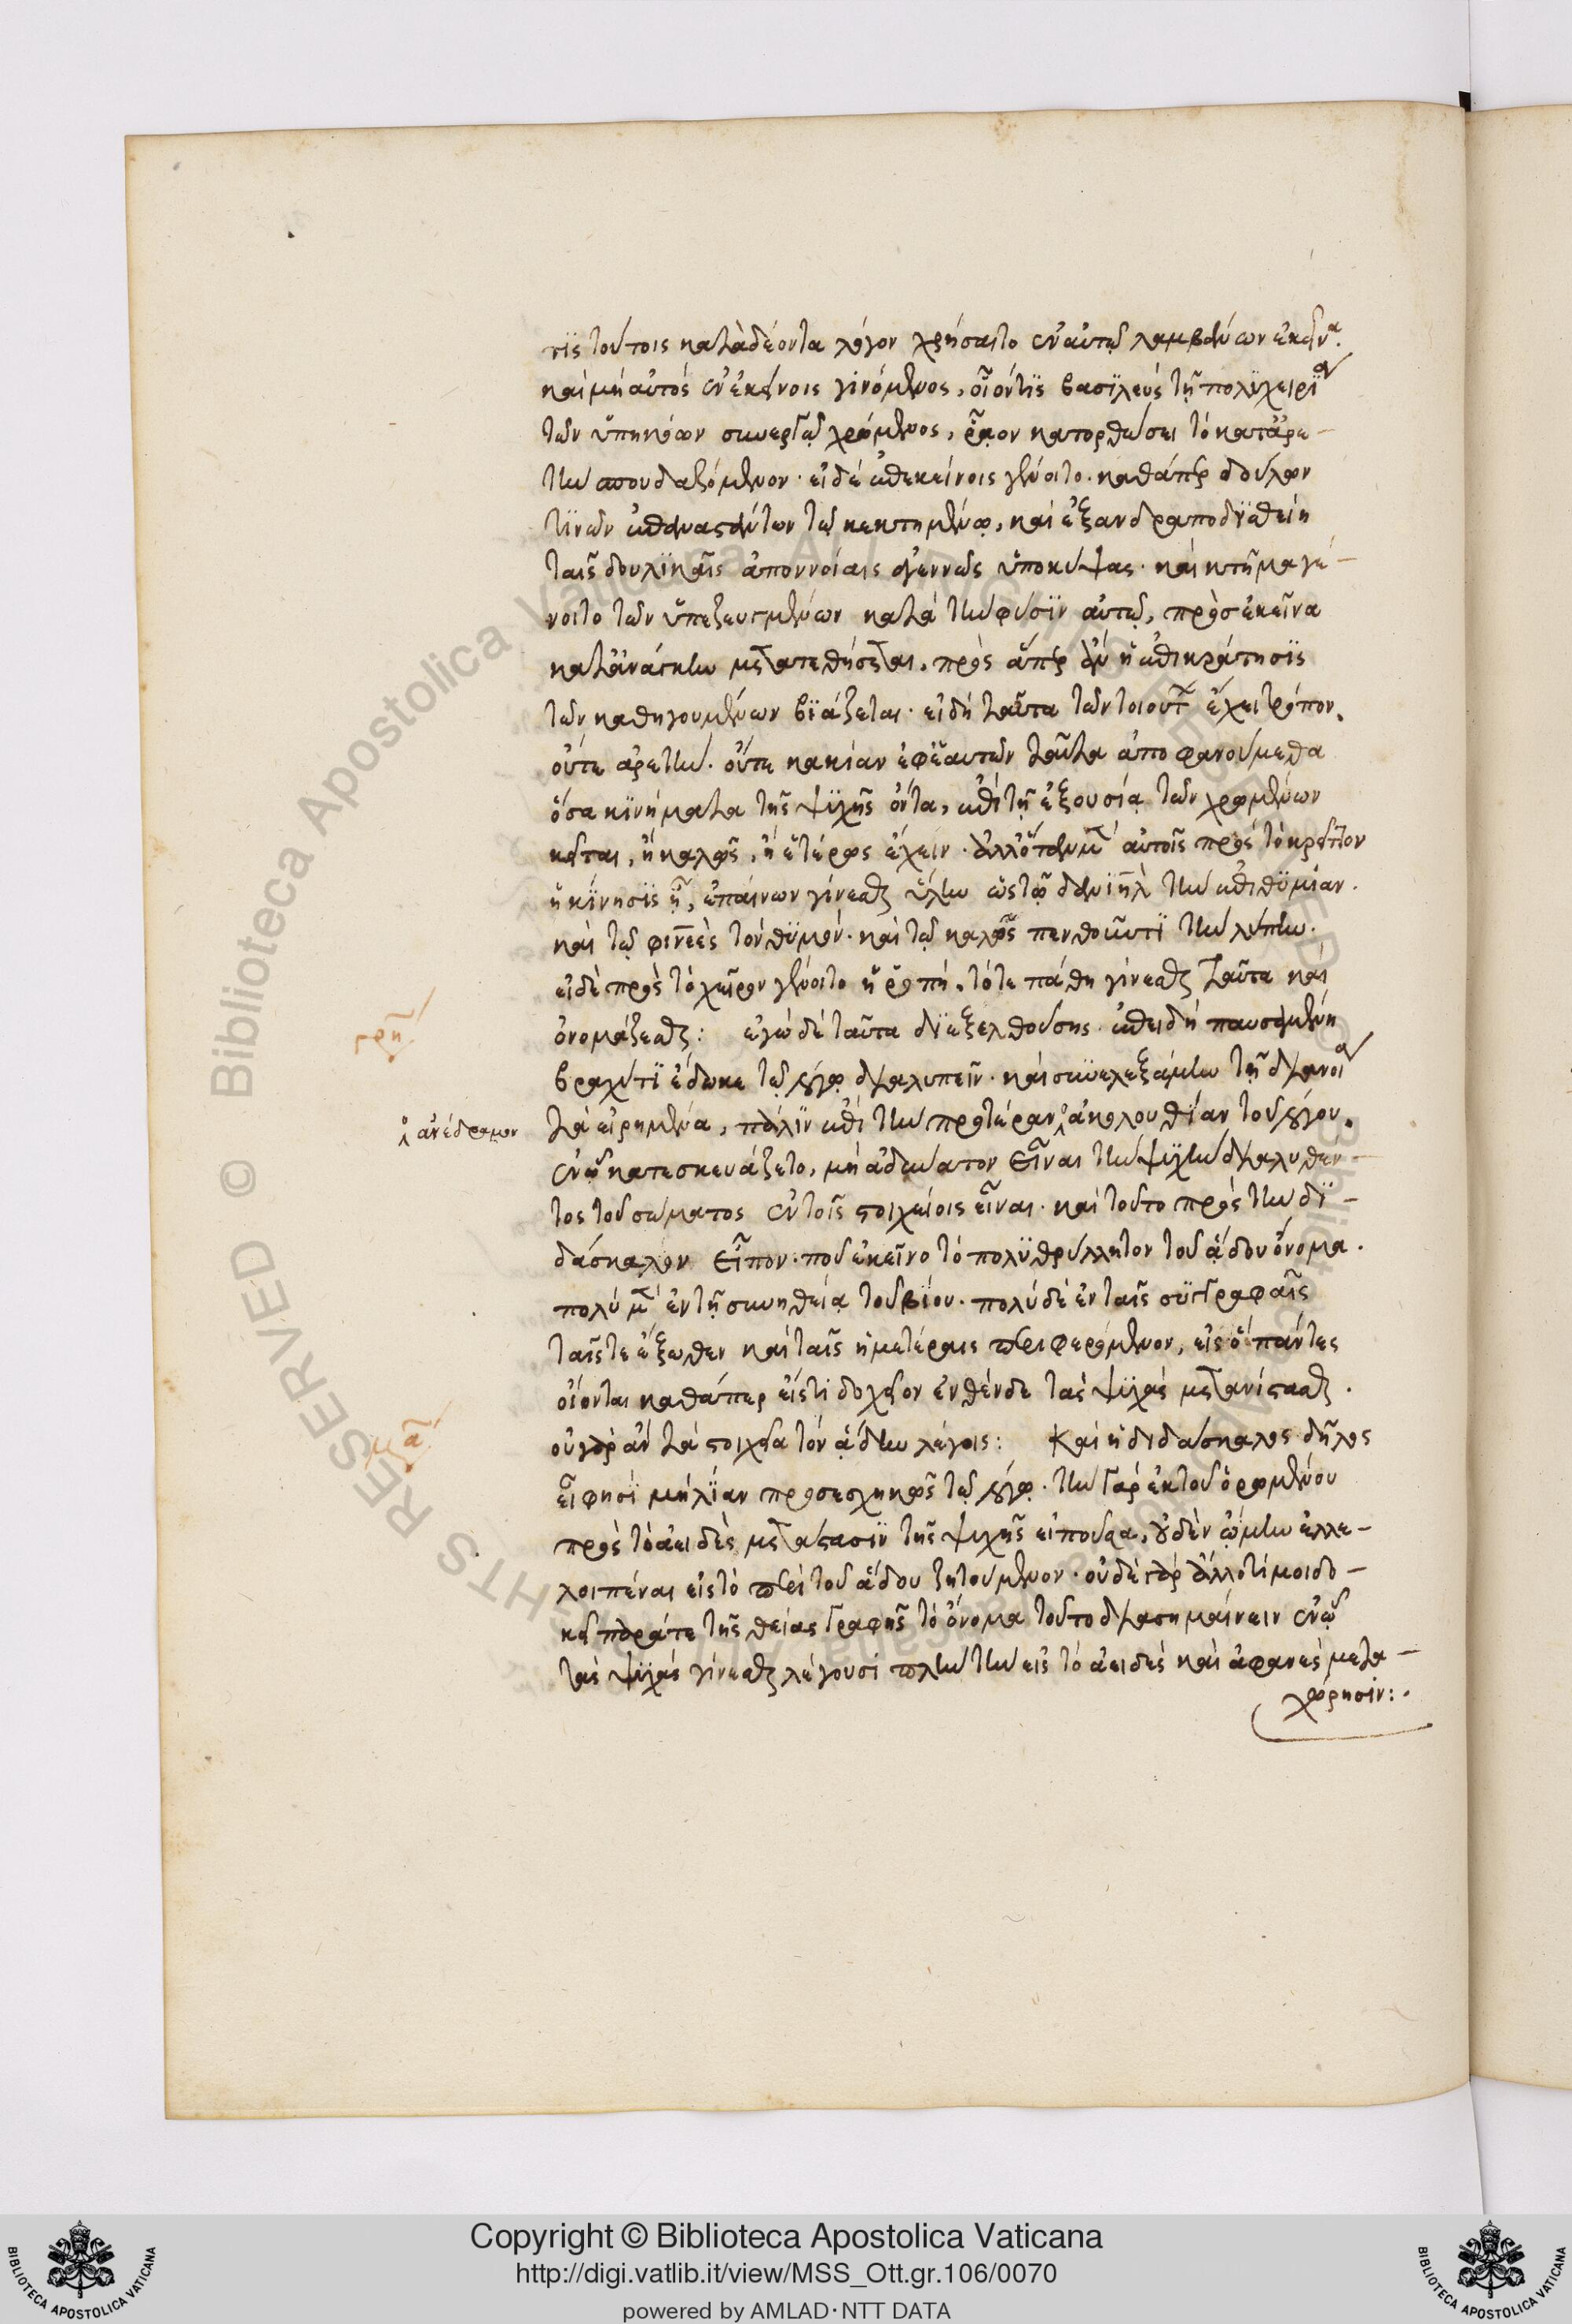 τϊς τούτοις κατὰ δέοντα λόγον χρήσαιτο ἐν αὐτῷ λαμβάνων ἐκεῖνα.
καὶ μὴ αὐτὸς ἐν ἐκείνοις γινόμενος, οἷόν τϊς βασϊλεὺς τῇ πολϋχειρίᾳ
τῶν ὑπηκόων συνεργῷ χρώμενος, ῥᾷον κατορθώσει τὸ κατ' ἀρε-
τὴν σπουδαζόμενον. εἰ δὲ ἐπ' ἐκείνοις γένοιτο. καθάπερ δούλων
τϊνῶν ἐπαναστάντων τῷ κεκτημένῳ, καὶ ἐξανδραποδϊσθείη
ταῖς δουλϊκαῖς ἀπονοίαις ἀγεννῶς ὑποκύψας. καὶ κτῆμα γέ-
νοιτο τῶν ὑπεζευγμένων κατὰ τὴν φύσϊν αὐτῷ, πρὸς ἐκεῖνα
κατ' ἀνάγκην μετατεθήσεται. πρὸς ἅπερ ἂν ἡ ἐπικράτησϊς
τῶν καθηγουμένων βϊάζεται. εἰ δὴ ταῦτα τῶν τοιοῦτον ἔχει τρόπον.
οὔτε ἀρετὴν. οὔτε κακίαν ἐφ' ἑαυτῶν ταῦτα ἀποφανούμεθα
ὅσα κϊνήματα τῆς ψϋχῆς ὄντα, ἐπὶ τῇ ἐξουσίᾳ τῶν χρωμένων
κεῖται, ἢ καλῶς, ἢ ἑτέρως ἔχειν. ἀλλ' ὅταν μὲν αὐτοῖς πρὸς τὸ κρεῖττον
ἡ κίνησϊς ᾖ, ἐπαίνων γίνεσθαι ὕλην ὡς τῷ δανιὴλ τὴν ἐπιθϋμίαν.
καὶ τῷ φινεὲς τὸν θϋμόν. καὶ τῷ καλῶς πενθοῦντϊ τὴν λύπην.
εἰ δὲ πρὸς τὸ χεῖρον γένοιτο ἡ ῥοπή, τότε πάθη γίνεσθαι ταῦτα καὶ
ὀνομάζεσθαι: ἐγὼ δὲ ταῦτα δϊεξελθούσης. ἐπειδὴ παυσαμένη
βραχύ τϊ ἔδωκε τῷ λόγῳ διαλιπεῖν. καὶ συνελεξάμην τῇ διανοίᾳ
τὰ εἰρημένα, πάλϊν ἐπὶ τὴν προτέραν ἀκολουθίαν τοῦ λόγου.
ἀνέδραμον
ἐν ᾧ κατεσκευάζετο, μὴ ἀδύνατον εἶναι τὴν ψϋχὴν διαλυθέν-
τος τοῦ σώματος ἐν τοῖς στοιχείοις εἶναι. καὶ τοῦτο πρὸς τὴν δϊ-
δάσκαλον εἶπον. ποῦ ἐκεῖνο τὸ πολϋθρύλλητον τοῦ ᾅδου ὄνομα.
πολὺ μὲν ἐν τῇ συνηθείᾳ τοῦ βίου. πολὺ δὲ ἐν ταῖς συγγραφαῖς
ταῖς τε ἔξωθεν καὶ ταῖς ἡμετέραις περιφερόμενον, εἰς ὃ πάντες
οἴονται καθάπερ εἴς τι δοχεῖον ἐνθένδε τὰς ψϋχὰς μετανίστασθαι.
οὐ γὰρ ἂν τὰ στοιχεῖα τὸν ᾅδην λέγοις: Καὶ ἡ διδάσκαλος δῆλος
εἶ φησὶ μὴ λίαν προσεσχηκὼς τῷ λόγῳ. τὴν γὰρ ἐκ τοῦ ὁρωμένου
πρὸς τὸ ἀειδὲς μετάστασϊν τῆς ψυχῆς εἰποῦσα, οὐδὲν ᾤμην ἐλλε-
λοιπέναι εἰς τὸ περὶ τοῦ ᾅδου ζητούμενον. οὐδὲ γὰρ ἄλλό τί μοι δο-
κεῖ παρά τε τῆς θείας γραφῆς τὸ ὄνομα τοῦτο διασημαίνειν ἐν ᾧ
τὰς ψϋχὰς γίνεσθαι λέγουσί πλὴν τὴν εἰς τὸ ἀειδὲς καὶ ἀφανὲς μετα-
χώρησιν:.
Copyright © Biblioteca Apostolica Vaticana
http://digi.vatlib.it/view/MSS_Ott.gr.106/0070
powered by AMLAD·NTT DATA